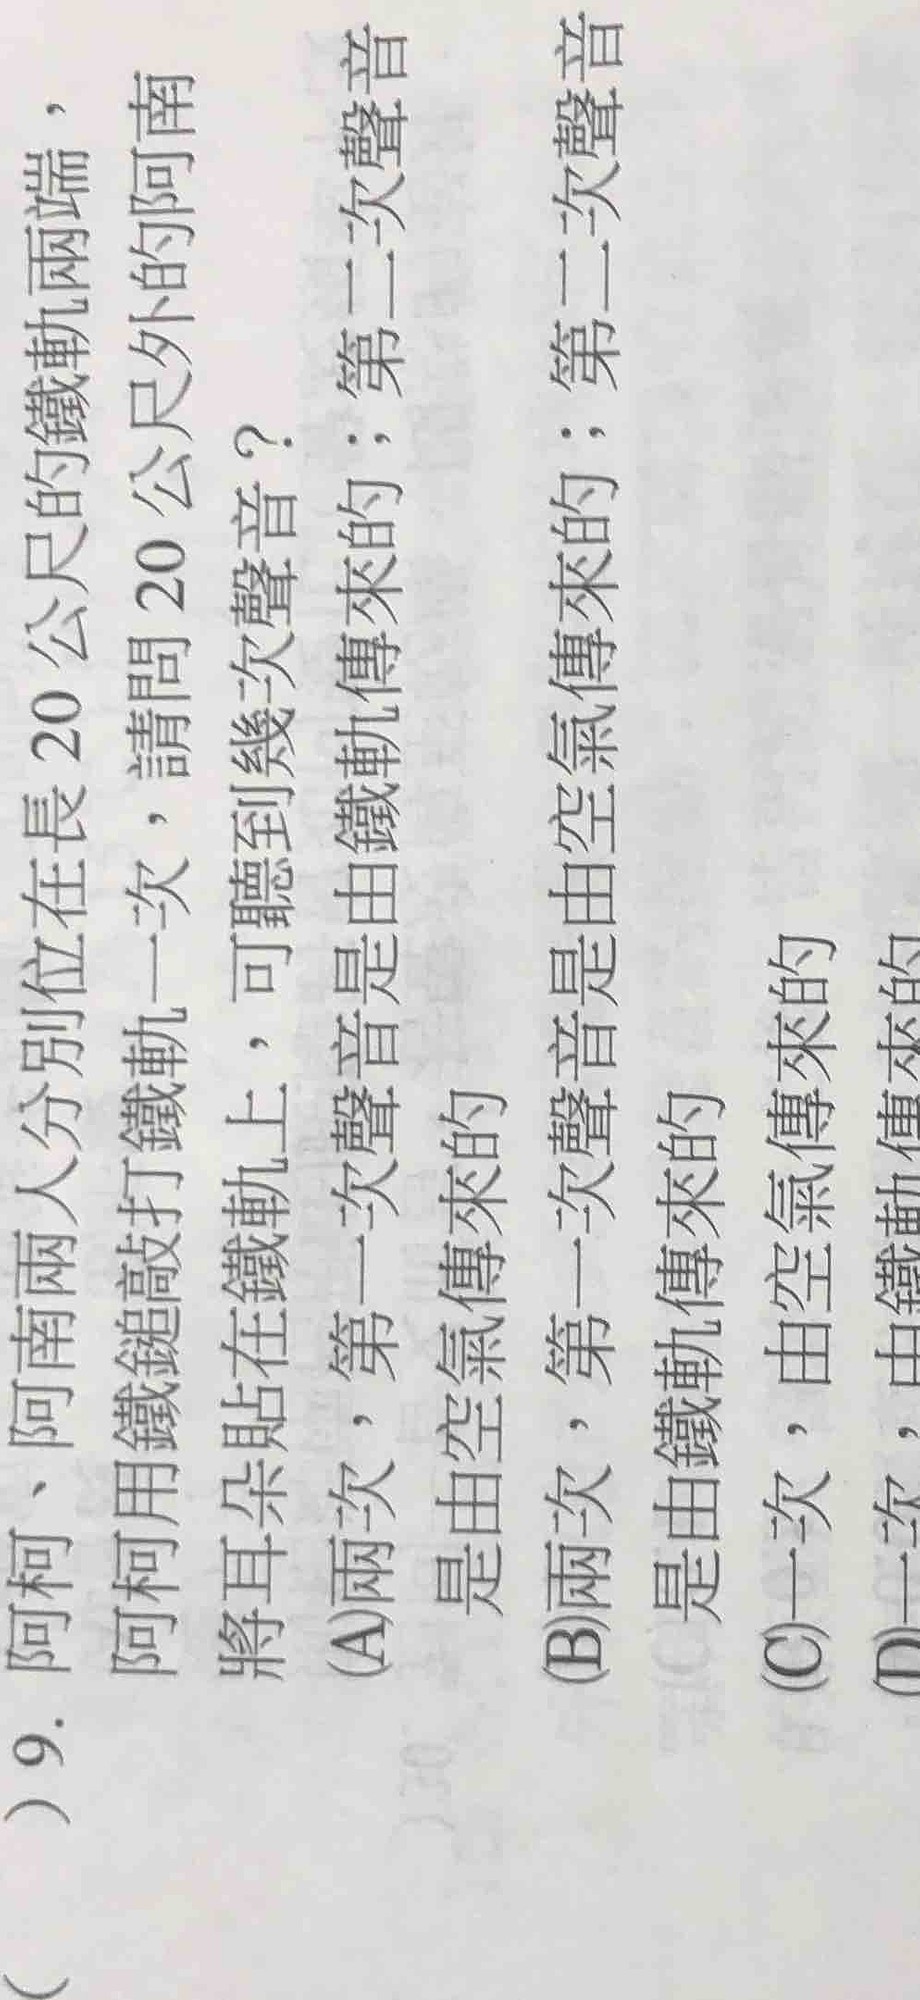 (　　) 9. 阿柯、阿南兩人分別位在長 20 公尺的鐵軌兩端，
阿柯用鐵鎚敲打鐵軌一次，請問 20 公尺外的阿南
將耳朵貼在鐵軌上，可聽到幾次聲音？
(A)兩次，第一次聲音是由鐵軌傳來的；第二次聲音
是由空氣傳來的
(B)兩次，第一次聲音是由空氣傳來的；第二次聲音
是由鐵軌傳來的
(C)一次，由空氣傳來的
(D)一次，由鐵軌傳來的